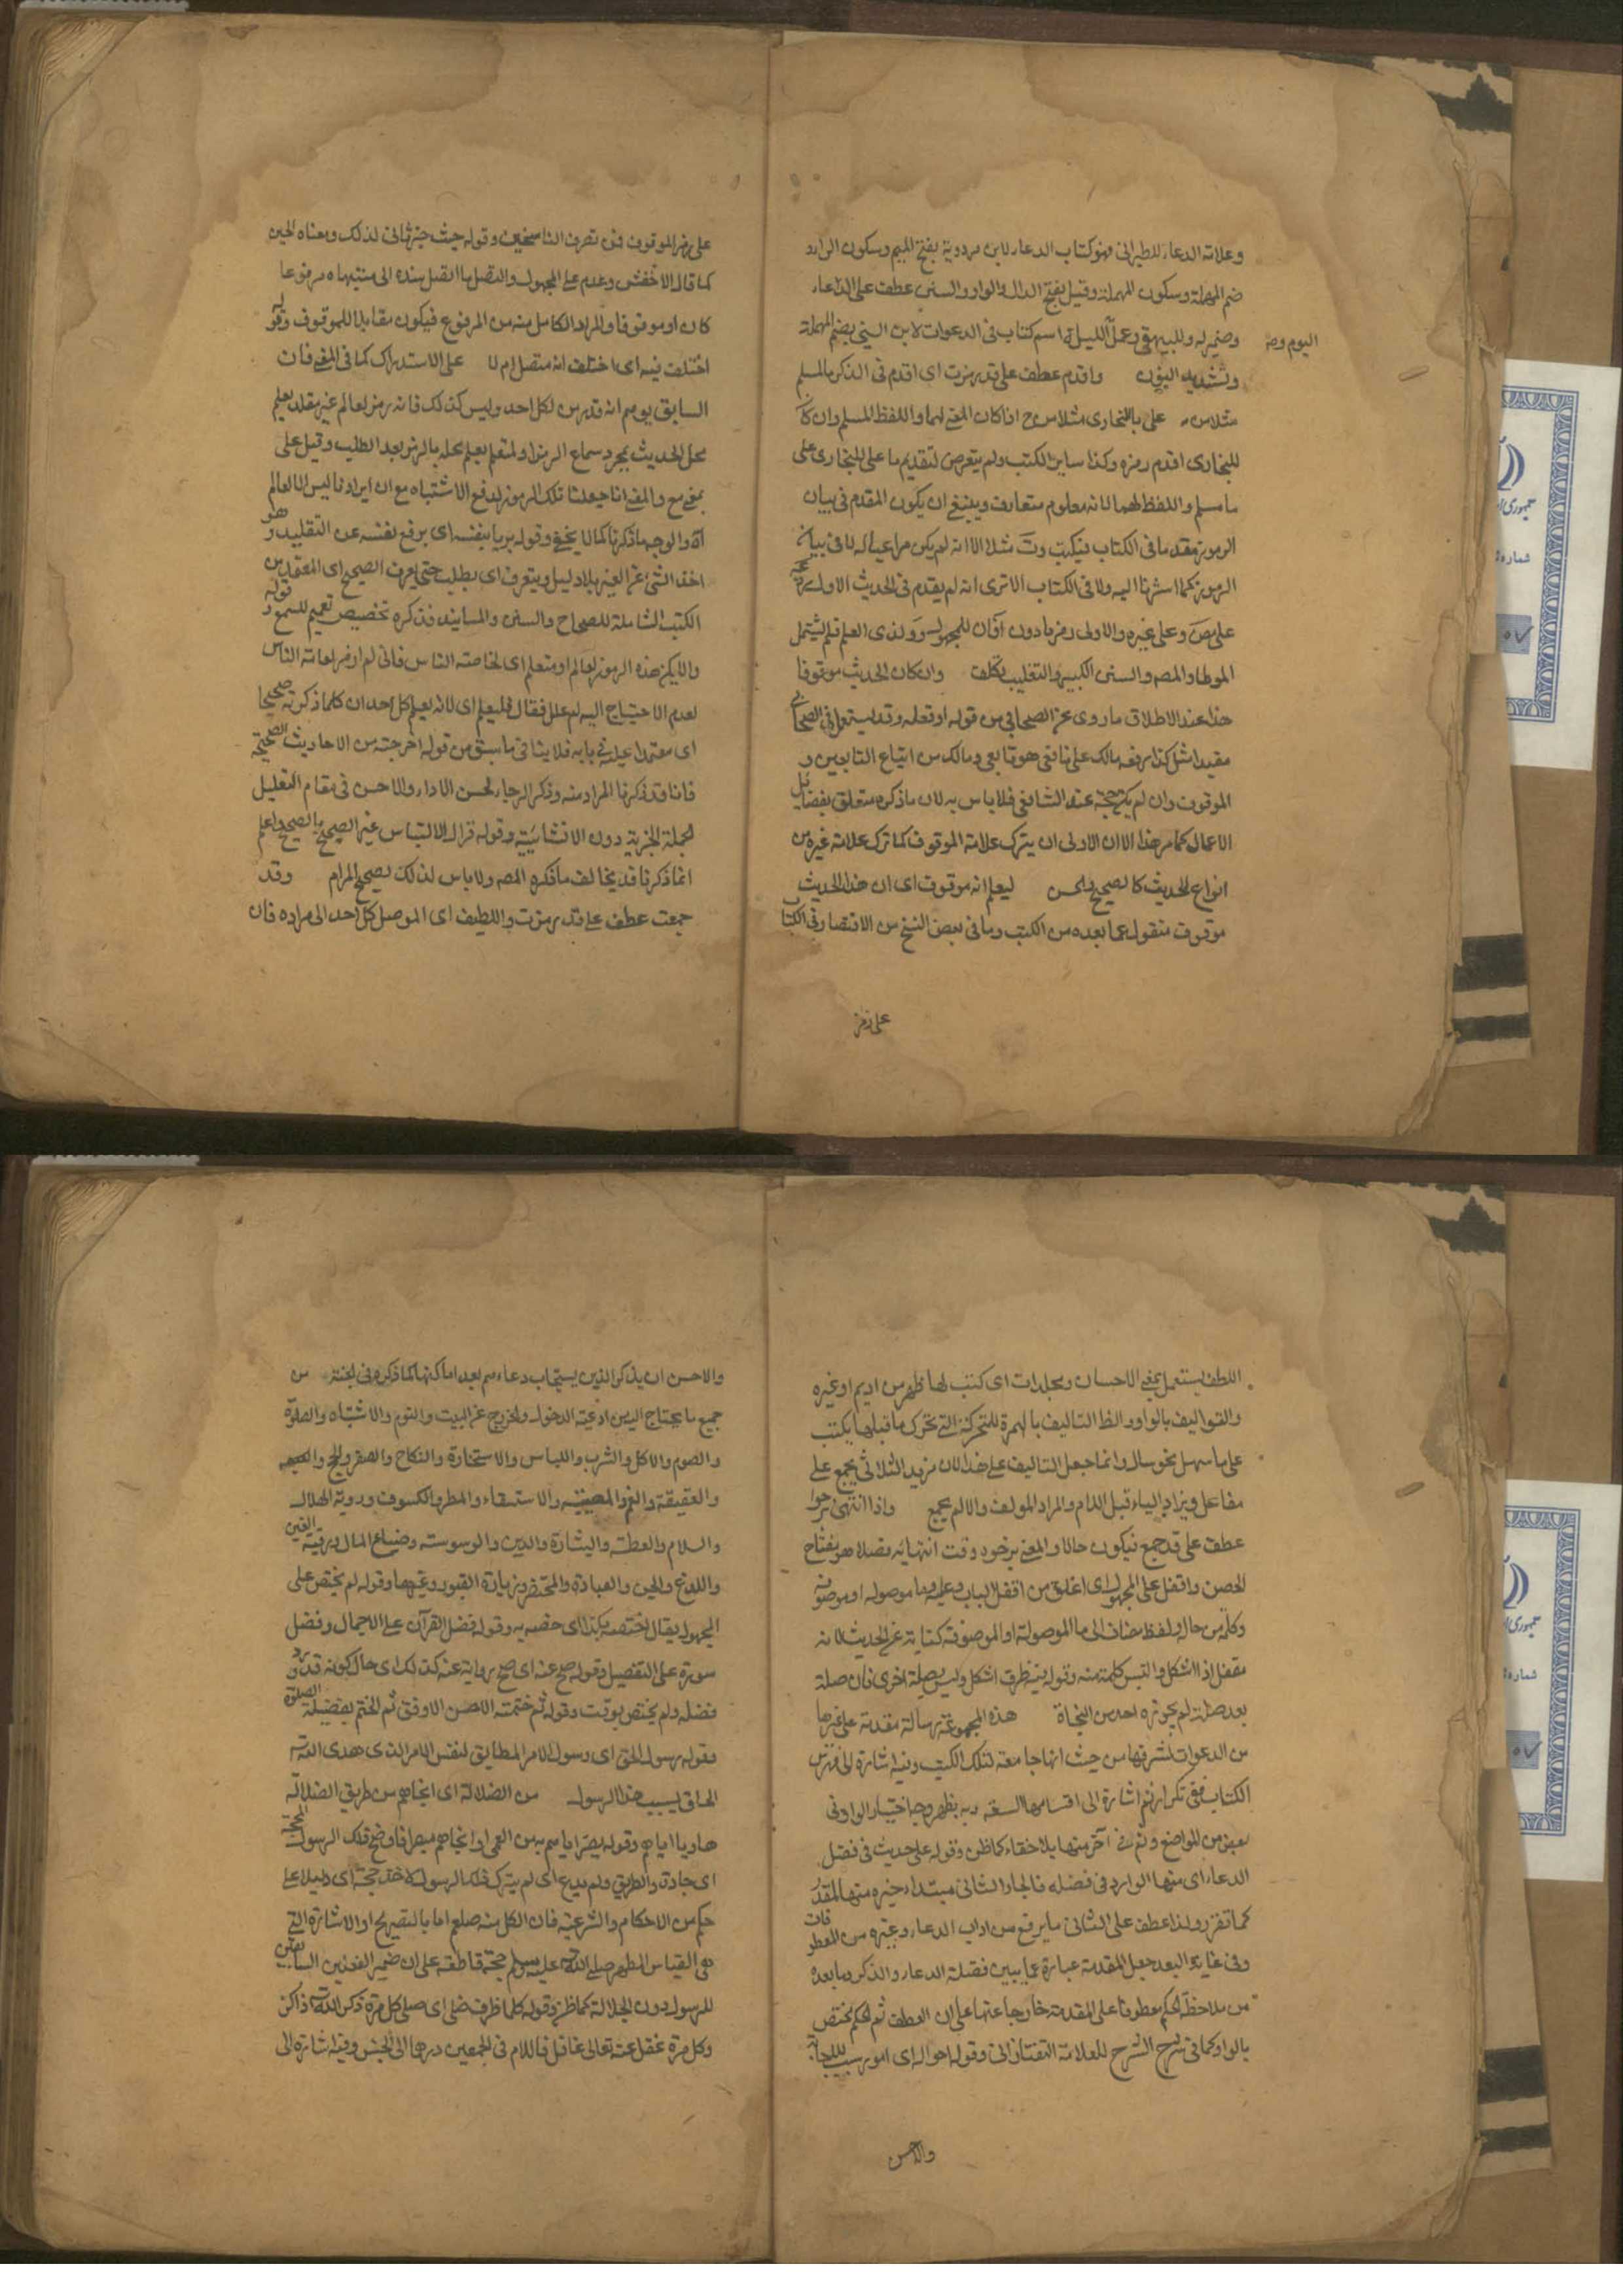 وعلامة الدعاء للطبرانى فهو كتاب الدعاء لابن مردوية بفتح الميم وسكون الراء و
ضم المهملة وسكون المهملة وقيل بفتح الدال والواو والسنى عطف على الدعاء
وضميره وللبيهقى وعمل الليلة اسم كتاب فى الدعوات لابن السنى بضم المهملة
اليوم وصه
وتشديد النون واقدم عطف على قد رمزت اى اقدم فى الذكر مالمسلم
مثلا من م على ما للبخارى مثلا من خ اذا كان المعنى لهما واللفظ لمسلم وان كان
للبخارى اقدم رمزه وكذا ساير الكتب ولم يتعرض لتقديم ما على البخارى على
ما مسلم واللفظ لهما لانه معلوم متعارف وينبغى ان يكون المقدم فى بيان
الرموز مقدما فى الكتاب فيكتب مثلا الا انه لم يكن مراعيا له لا فى بيان
الرموز كما اشرنا اليه ولا فى الكتاب الا ترى انه لم يقدم فى الحديث الاول
على مص وعلى غيره والاولى رمز بادون للمجهول ولذى العلم فلم يشتمل
الموطا والمصـ والسنن الكبير والتغليب تكلف وان كان الحديث موقوفا
هذا عند الاطلاق ما روى عن الصحابى من قوله او فعله وقد يستعمل فى الصحابى
مقيدا مثل كذا رفعه مالك على نافع هو تابعى ومالك من اتباع التابعين و
الموقوف وان لم يكن حجة عند الشافعى فلا باس به لان ما ذكره متعلق بفضايل
الاعمال كما مر هذا الا ان الاولى ان يترك علامة الموقوف كما ترك علامة غيره من
انواع الحديث كالصحيح والحسن ليعلم انه موقوف اى ان هذا الحديث
موقوف منقول عما بعده من الكتب وما فى بعض النسخ من الاقتصار فى الكتاب
على رمز
على رمز الموقوف فمن تصرف الناسخين وقوله حيث خبر ثانى لذلك ومعناه الحين
كما قال الاخفش وعدم على المجهول والمتصل ما اتصل سنده الى منتهاه مرفوعا
كان او موقوفا والمراد الكامل منه من المرفوع فيكون مقابلا للموقوف وقوله
اختلف فيه اى اختلف انه متصل ام لا على الاستدراك كما فى المغنى فان
السابق يوهم انه قد رمز لكل احد وليس كذلك فانه رمز لعالم غير مقلد يعلم
محل الحديث بمجرد سماع الرمز او لمتعلم يعلم محله بالرمز بعد الطلب وقيل على
بمعنى مع والمعنى انا جعلنا تلك الرموز لدفع الاشتباه مع ان ايرادنا ليس الا لعالم
آه والوجه ما ذكرنا كما لا يخفى وقوله يربا بنفسه اى يرفع نفسه عن التقليد وهو
اخذ الشئ عن الغير بلا دليل ويتعرف اى يطلب حتى يعرف الصحيح اى المعتمد من
الكتب الشاملة للصحاح والسنن والمسانيد فذكره تخصيص تعميم للسمع وقوله
والا يكن هذه الرموز لعالم او متعلم اى لخاصة الناس فانى لم ارمز لعامة الناس
لعدم الاحتياج اليه لم علل فقال فليعلم اى لانه يعلم كل احد ان كلما ذكرته صحيحا
اى معتمدا عليه فى بابه فلا ينافى ما سبق من قوله اخرجته من الاحاديث الصحيحة
فانا قد ذكرنا المراد منه وذكر الرجاء لحسن الاداء والاحسن فى مقام التعليل
لجملة الخبرية دون الانشائية وقوله فزال الالتباس غير الصحيح بالصحيح واعلم
انما ذكرنا قد يخالف ما ذكره المصـ ولا باس لذلك لصحيح المرام وقد
جمعت عطف على قد رمزت واللطيف اى الموصل كل احد الى مراده فان
اللطف يستعمل بمعنى الاحسان ومجلدات اى كتب لها ظهر من اديم او غيره
والتواليف بالواو والظ التاليف بالهمزة المتحركة التى تحرك ما قبلها يكتب
على ما سهل نحو سال وانما جعل التاليف على هذا لان مزيد الثلاثى يجمع على
مفاعل ويزاد الياء قبل اللام والمراد المولف والا لم يجمع واذا انتهى رجوا
عطف على قد جمع فيكون حالا والمعنى يرجو وقت انتهائه فضلا هو مفتاح
الحصن واقفل على المجهول اى اغلق من اقفل الباب وعليه وما موصوله او موصوفة
وكلمة من حال ولفظ مضاف الى ما الموصولة او الموصوفة كناية عن الحديث لانه
مقفل اذا اشكل والتبس كلمة منه وقوله فيه ظرف اشكل وليس بصلة اخرى فان صلة
بعد صلة لم يجوزه احد من النحاة هذه المجموعة رسالة مقدمة على غيرها
من الدعوات لشرفها من حيث انها جامعة لتلك الكتب وفيه اشارة الى فهرس
الكتاب ففى تكرار ثم اشارة الى اقسامها السبعة وبه يظهر وجه اختيار الواو فى
بعض من المواضع وثم فى آخر منها بلا خفاء كما ظن وقوله على حديث فى فضل
الدعاء اى منها الوارد فى فضله فالجار الثانى مبتداء خبره منها المقدر
كما تقرر ولذا عطف على الثانى ما يرفع من اداب الدعاء وغيره من المعطوفات
وفى غاية البعد جعل المقدمة عبارة عما يبين فضلة الدعاء والذكر وما بعده
من ملاحظة الحكم معطوفا على المقدمة خارجا عنها على ان العطف ثم الحكم يختص
بالواو كما فى شرح الشرح للعلامة التفتازانى وقوله احواله اى امور سبب للاجابة
والاحسن
والاحسن ان يذكر الذين يستجاب دعاءهم بعد اماكنها كما ذكره فى الجنة من
جميع ما يحتاج اليه من ادعية الدخول والخروج عن البيت والنوم والانتباه والصلوة
والصوم والاكل والشرب واللباس والاستخارة والنكاح والسفر والحج
والعقيقة والغم والمصيبة والاستسقاء والمطر والكسوف ورويته الهلال
والسلام والعطسة والبشارة والدين والوسوسة وضياع المال ورقية العين
واللدغ والجن والعيادة والمحتضر وزيارة القبور وغيرها وقوله لم يختص على
المجهول يقال اختصه بكذا اى خصه به وقوله فضل القرآن على الاجمال وفضل
سورة على التفصيل وقوله صح عنه اى صح رواية عنه كذلك اى حال كونه قد ورد
فضله ولم يختص بوقت وقوله ثم ختمته الاحسن الاوفق ثم الختم بفضيلة الصلوة
وقوله رسول الحق اى رسول الامر المطابق لنفس الامر الذى هدى الله
الخلق بسبب هذا الرسول من الضلالة اى انجاهم من طريق الضلالة
هاديا اياهم وقوله بصر اياهم به من العمى او انجاهم مبصرا فاوضح ذلك الرسول المحجة
اى جادة والطريق ولم يدع اى لم يترك ذلك الرسول لاحد حجة اى دليلا على
حكم من الاحكام والشرعية فان الكل منه صلعم اما بالتصريح او الاشارة التى
هى القياس المطهر صلى الله عليه وسلم حجة قاطعة على ان ضمير الفعلين السابقين
للرسول دون الجلالة كما ظن وقوله كلما ظرف صلى اى صلى كل مرة ذكر الله ذاكر
وكل مرة غفل عنه تعالى غافل فاللام فى الجمعين درها الى الجنس وفيه اشارة الى